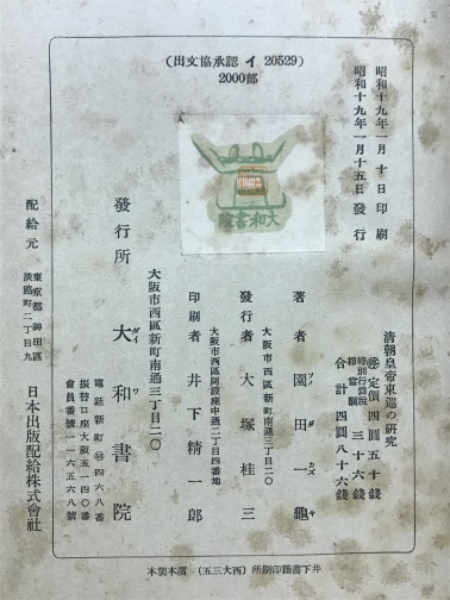 (出文協承認イ 20529)
2000部
昭和十九年一月十日印刷
昭和十九年一月十五日發行
大和書院
清朝皇帝東巡の研究
㊞定價四圓五十錢
特別行爲税相當額 三十六錢
合計四圓八十六錢
著者 園田一龜
ソノダカズキ
大阪市西區新町南通三丁目二〇
發行者 大塚桂三
大阪市西區阿波座中通二丁目四番地
印刷者 井下精一郎
大阪市西區新町南通三丁目二〇
發行所 大和書院
ダイワ
電話新町㊳四六八番
振替口座大阪五一四〇番
會員番號一一六五六八號
配給元 東京都神田區淡路町二丁目九 日本出版配給株式會社
井下書籍印刷所(西大三五) 濱本製本